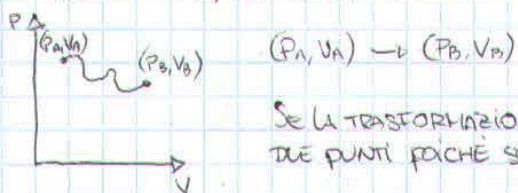 P
(PA, VA)
(PB, VB)
V
(PA, VA) → (PB, VB)
SE LA TRASFORMAZIO
DUE PUNTI POICHÈ S